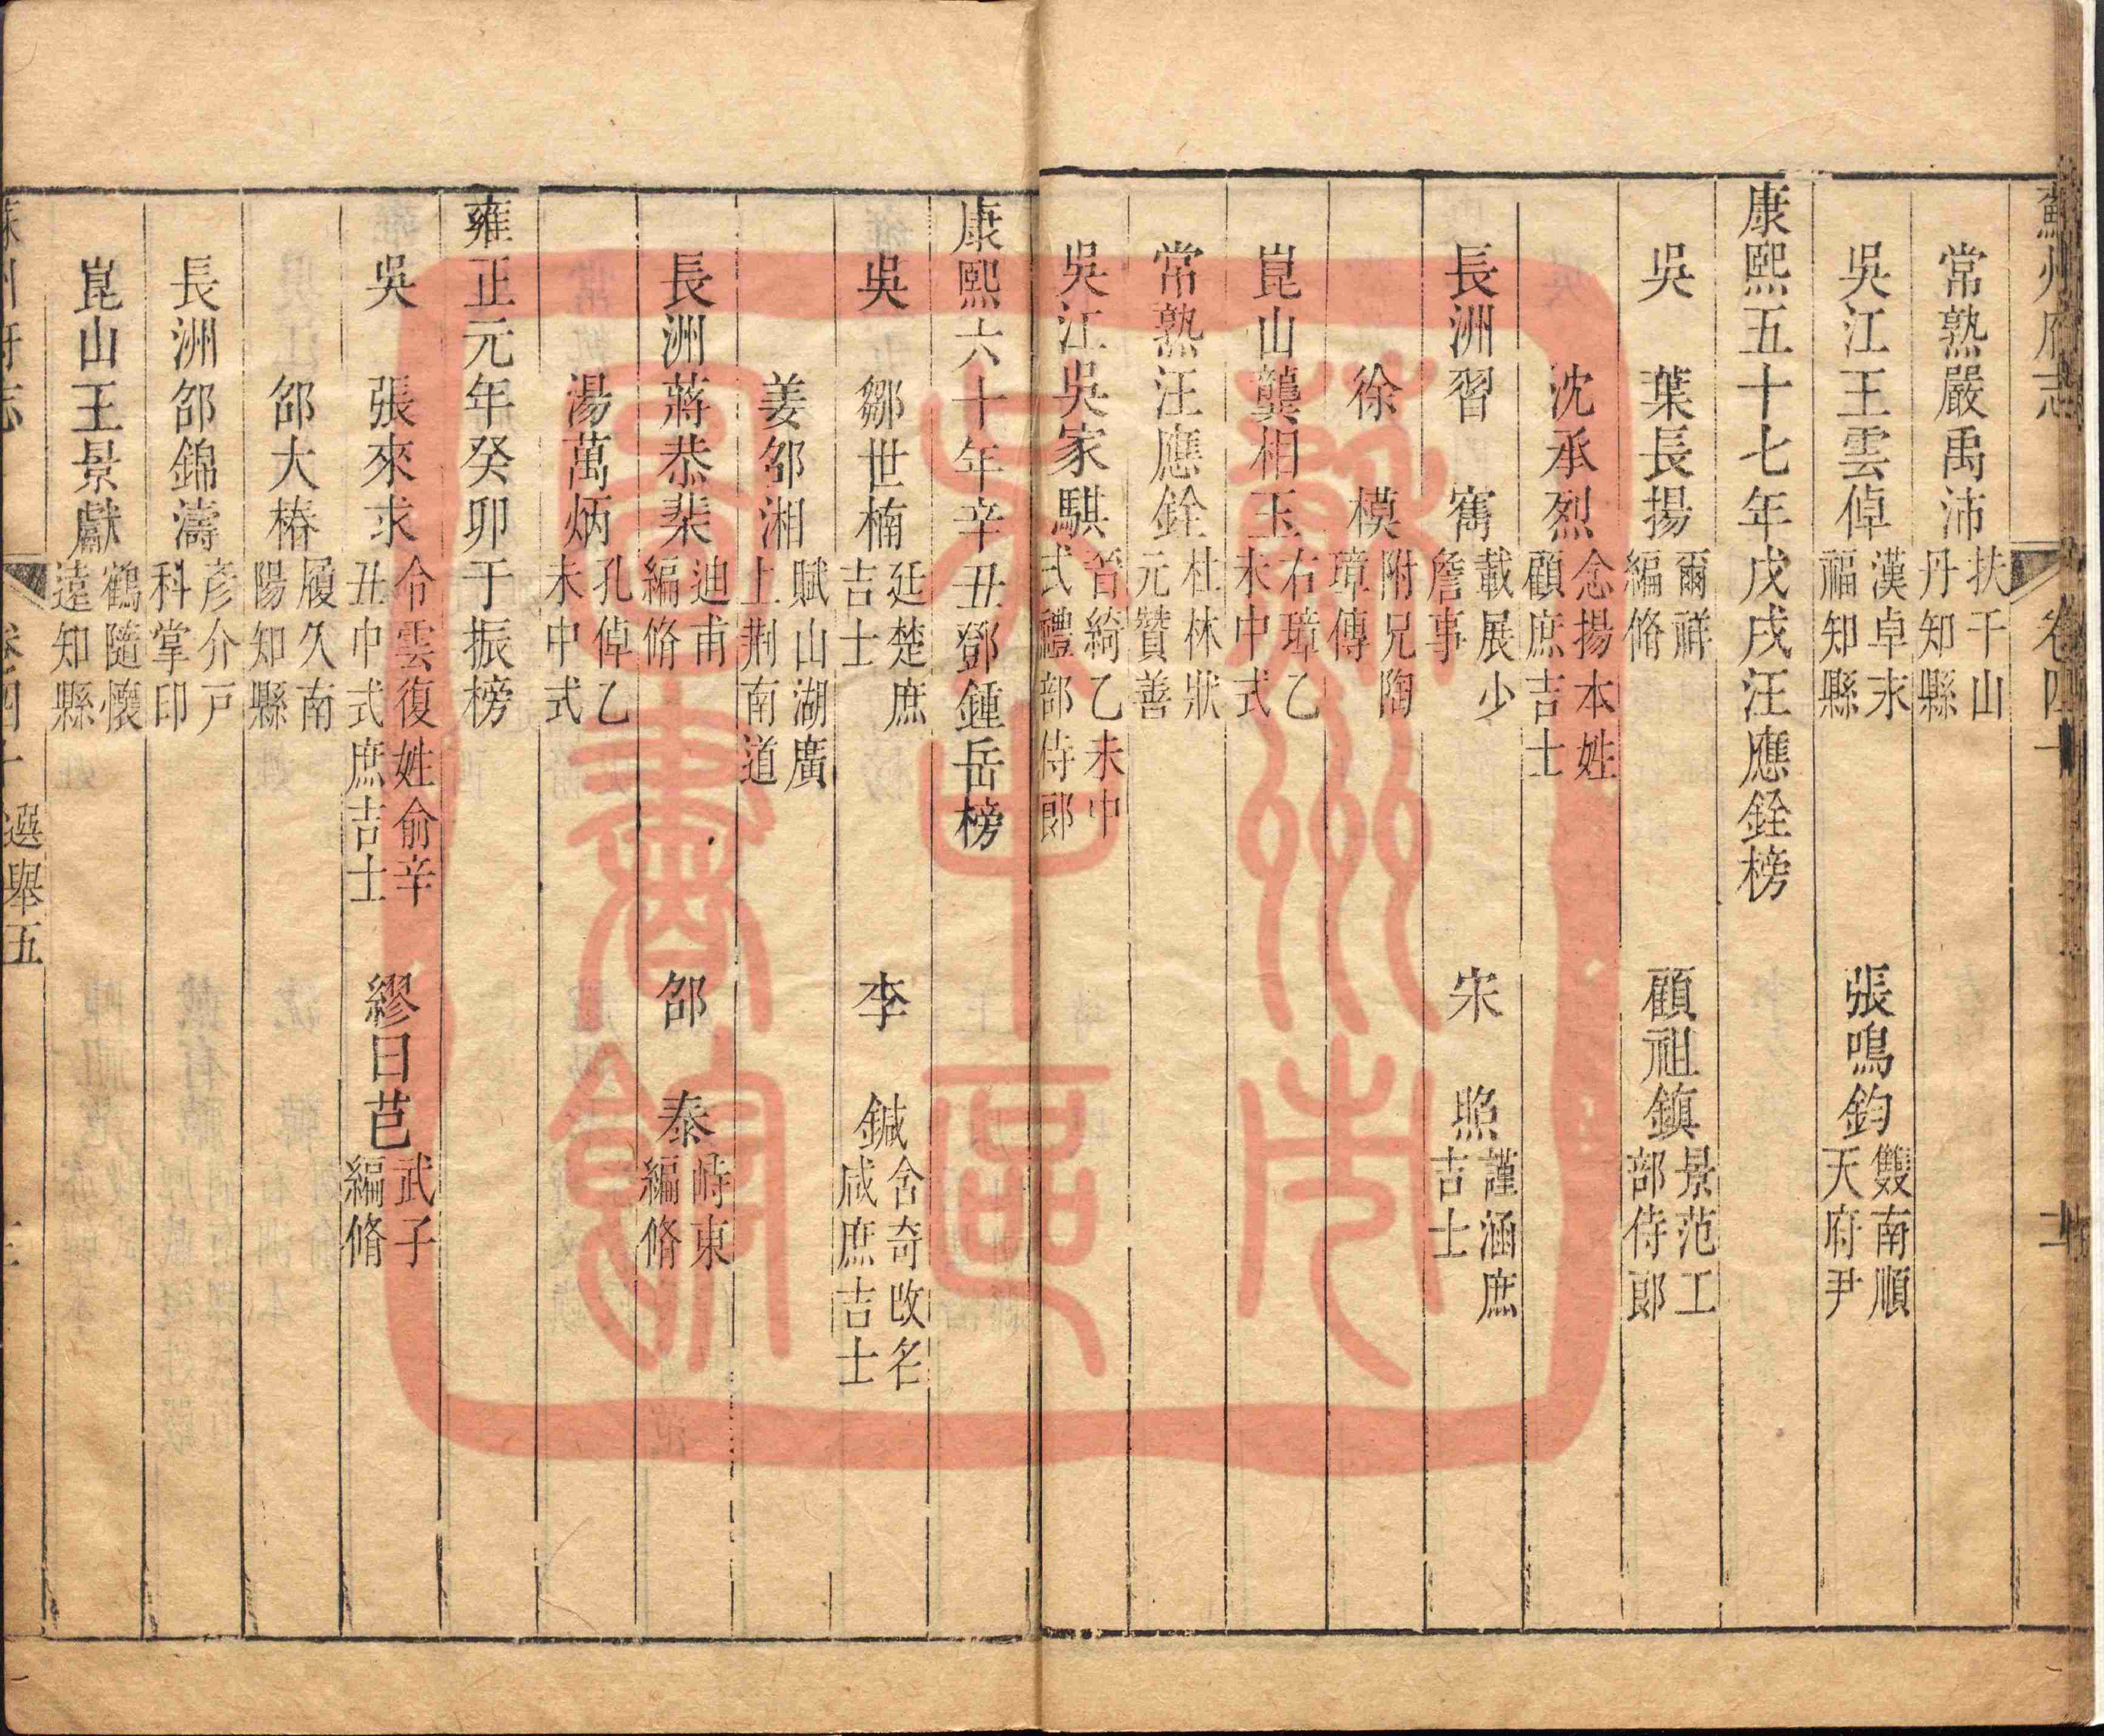 蘇州府志 卷四十
常熟嚴禹沛 扶千山 丹知縣
吳江王雲倬 漢卓末 福知縣 張鳴鈞 雙南順 天府尹
康熙五十七年戊戌汪應銓榜
吳 葉長揚 爾祥 編脩 顧祖鎮 景范工 部侍郎
沈承烈 念揚本姓 顧庶吉士
長洲習寯 載展少 詹事 宋照 謹涵庶 吉士
徐模 附兄陶 璋傳
崑山龔相玉 右璋乙 未中式
常熟汪應銓 杜林狀 元贊善
吳江吳家騏 晉綺乙未中 式禮部侍郎
康熙六十年辛丑鄧鍾岳榜
吳 鄒世楠 延楚庶 吉士 李鍼 含奇改名 咸庶吉士
姜邵湘 賦山湖廣 上荆南道
長洲蔣恭棐 迪甫 編脩 邵泰 峙東 編脩
湯萬炳 孔倬乙 未中式
雍正元年癸卯于振榜
吳 張來求 令雲復姓俞辛 丑中式庶吉士 繆曰芑 武子 編脩
邵大椿 履久南 陽知縣
長洲邵錦濤 彥介戸 科掌印
崑山王景獻 鶴隨懷 遠知縣
蘇州府志 卷四十 選舉五
蘇州市吳中區圖書館